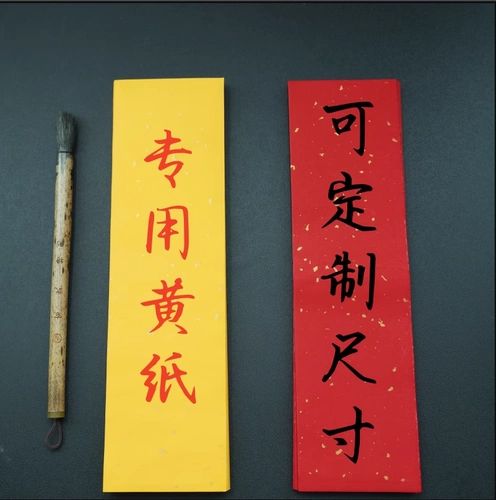 专用黄纸
可定制尺寸